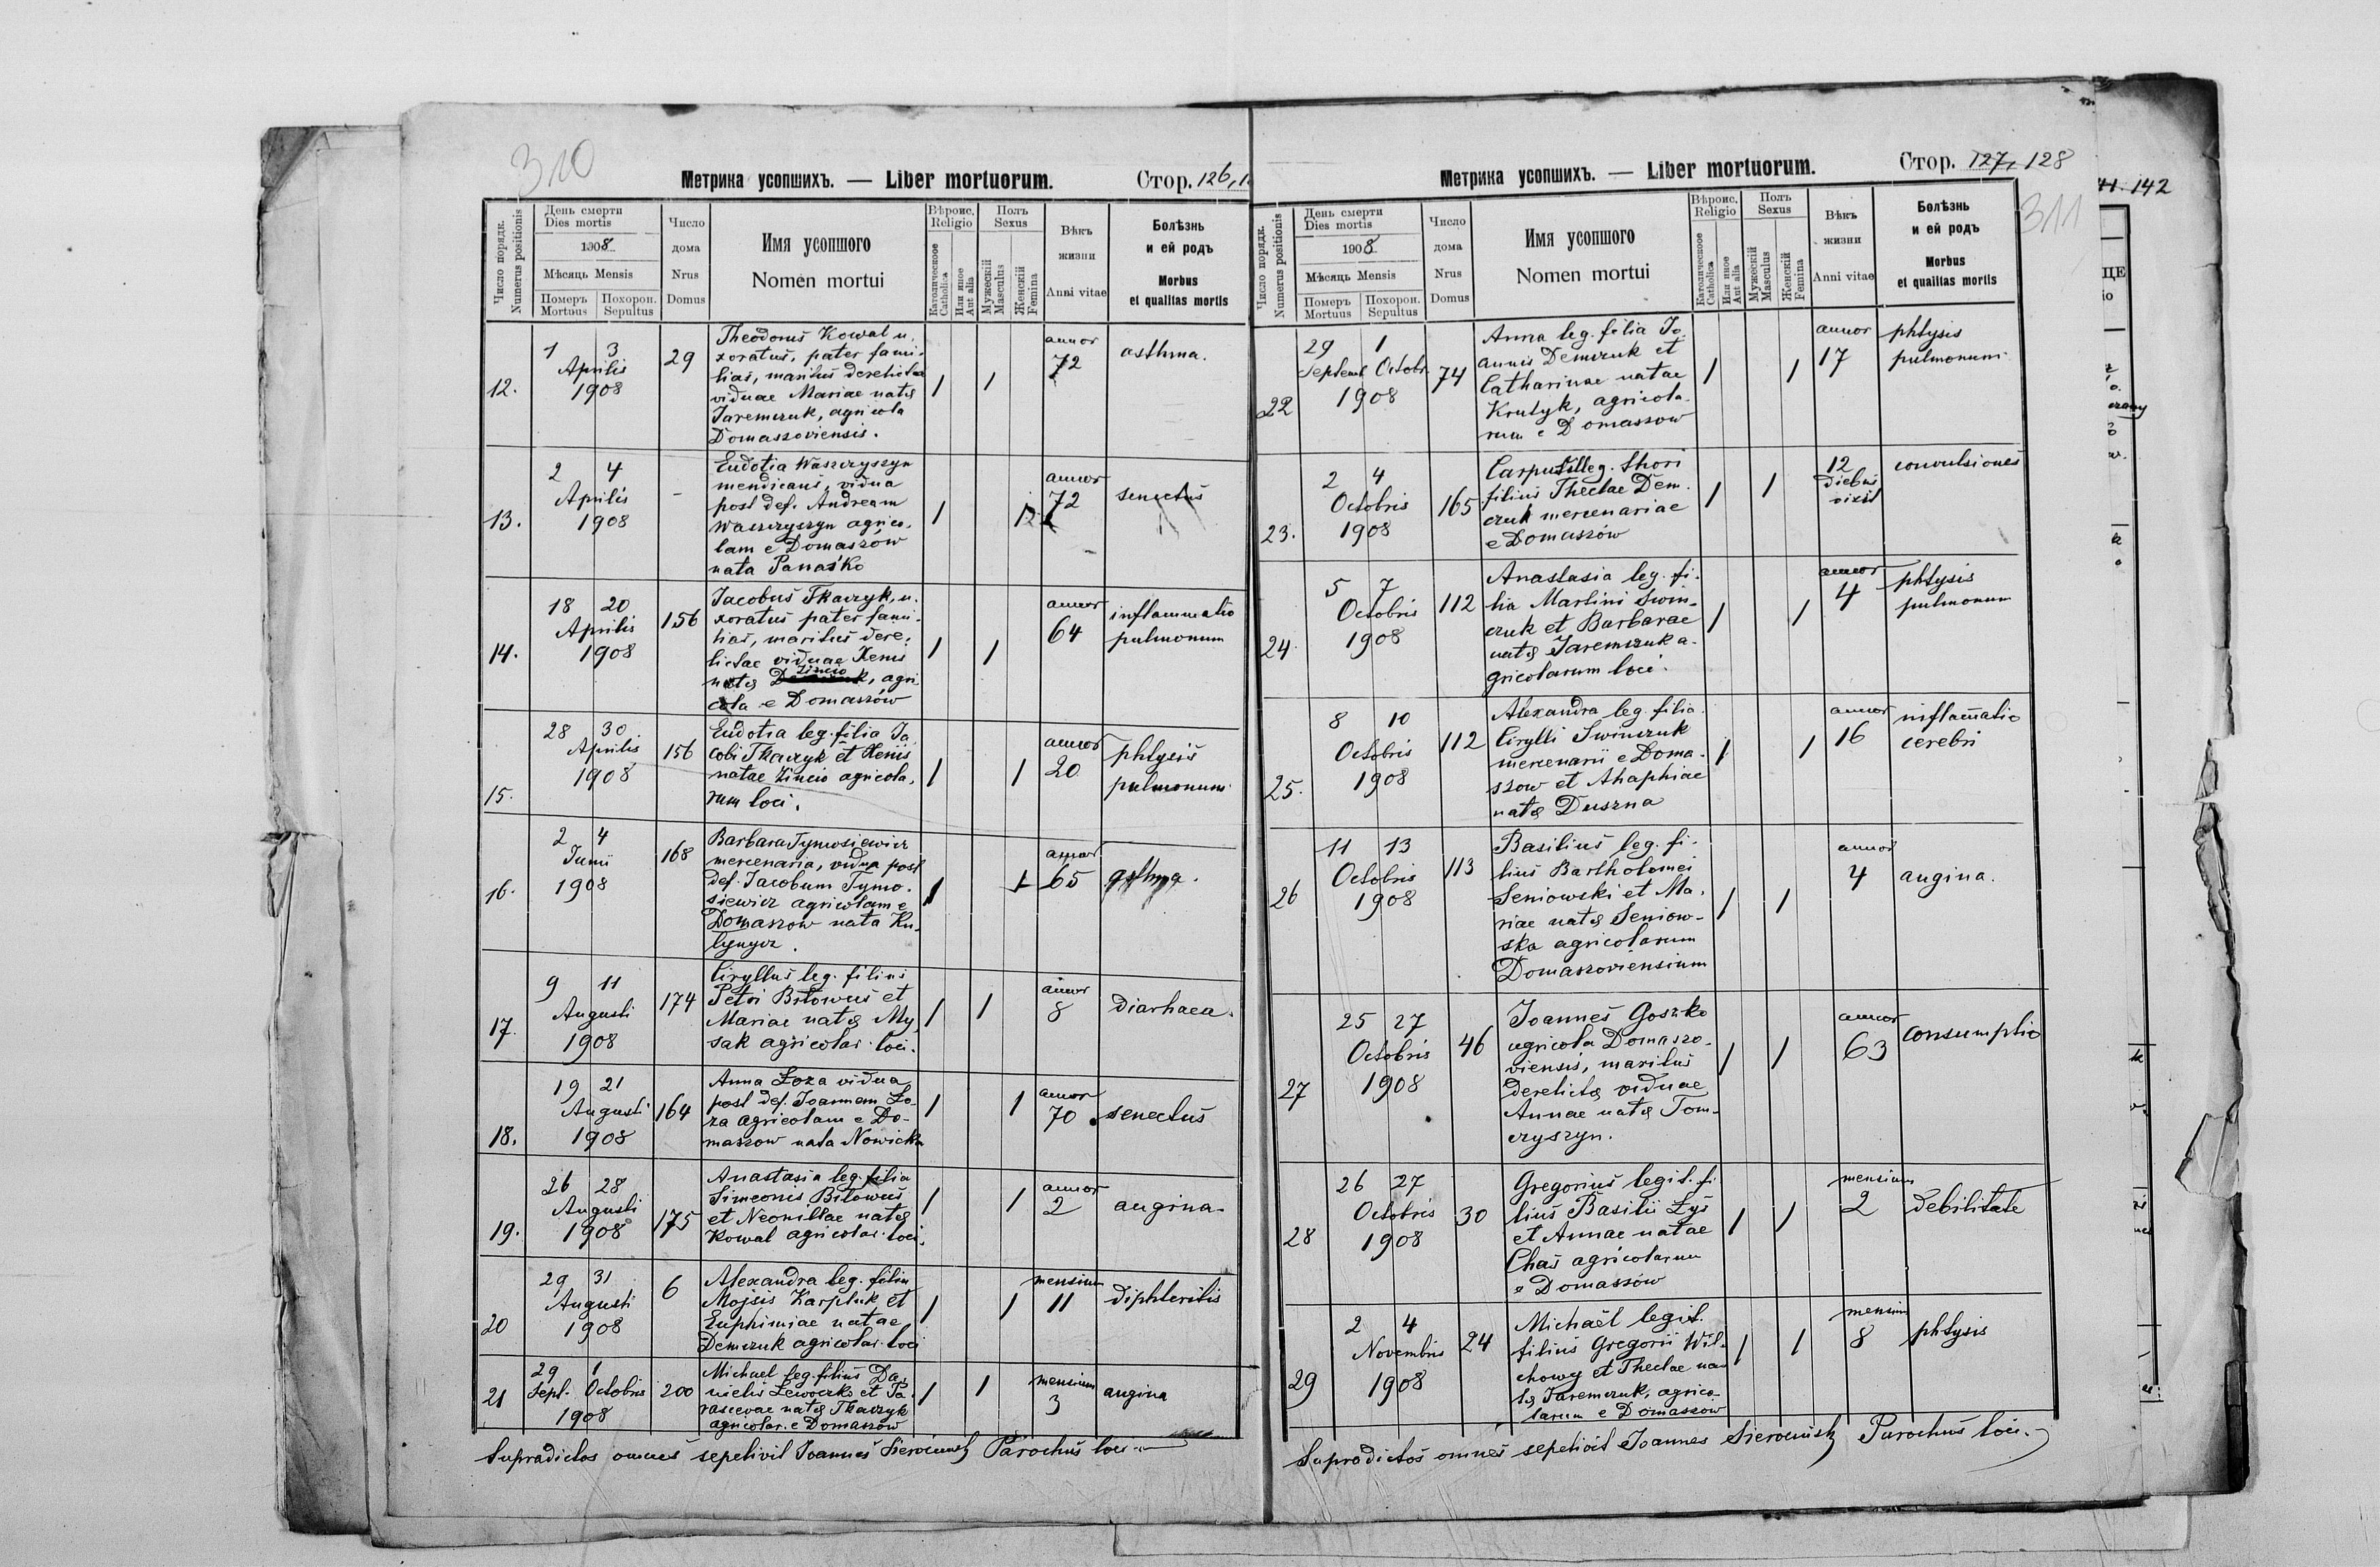 310
Метрика усопшихъ. — Liber mortuorum.
Стор. 126,
Число порядк. Numerus positionis
День смерти Dies mortis
1908
Мѣсяць Mensis
Померъ Mortuus
Похорон. Sepultus
Число дома Nrus Domus
Имя усопшого
Nomen mortui
Вѣроис. Religio
Католическоое Catholica
Или иное Aut alia
Полъ Sexus
Мужескій Masculus
Женскій Femina
Вѣкъ жизни Anni vitae
Болѣзнь и ей родъ
Morbus et qualitas mortis
12.
1 3
Aprilis
1908
29
Theodorus Kowal u.
xoratus, pater fami-
lias, maritus derelictae
viduae Mariae natę
Jaremczuk, agricola
Domaszoviensis.
1 1
annor
72
asthma.
13.
2 4
Aprilis
1908
-
Eudotia Waszczyszyn
mendicans, vidua
post def. Andream
Waszczyszyn agrico-
lam e Domaszów
nata Panaśko
1
annor
72
senectus
14.
18 20
Aprilis
1908
156
Jacobus Tkaczyk, u.
xoratus pater fami-
lias, maritus dere-
lictae viduae Xeni
Zincio
natę, agri
cola e Domaszów
1 1
annor
64
inflammatio
pulmonum
15.
28 30
Aprilis
1908
156
Eudotia leg. filia Ja
cobi Tkaczyk et Xenis
natae Zincio agricola-
rum loci.
1 1
annor
20
phtysis
pulmonum
16.
2 4
Junii
1908
168
Barbara Tymosiewicz
mercenaria, vidua post
def. Jacobum Tymo-
siewicz agricolam e
Domaszow nata Ku-
lynycz.
1 1
annor
65
asthma.
17.
9 11
Augusti
1908
174
Ciryllus leg. filius
Petri Biłowus et
Mariae natę My
sak agricolar. loci.
1 1
annor
8
diarhaea.
18.
19 21
Augusti
1908
164
Anna Łoza vidua
post def. Joannem Ło-
za agricolam e Do-
maszow nata Nowicka
1 1
annor
70
senectus
19.
26 28
Augusti
1908
175
Anastasia leg. filia
Simeonis Biłowus
et Neonillae natę
Kowal agricolar. loci.
1 1
annor
2
angina
20
29 31
Augusti
1908
6
Alexandra leg. filia
Mojsis Karpluk et
Euphimiae natae
Demczuk agricolar. loci
1 1
mensium
11
diphteritis
21
29 1
Sept. Octobris
1908
200
Michael leg. filius Da-
nielis Lewoczko et Pa-
rascevae natę Tkaczyk
agricolar. e Domaszów
1 1
mensium
3
angina
Supradictos omnes sepelivit Joannes Sierociński Parochus loci
Метрика усопшихъ. — Liber mortuorum.
Стор. 127, 128
311
Число порядк. Numerus positionis
День смерти Dies mortis
1908
Мѣсяць Mensis
Померъ Mortuus
Похорон. Sepultus
Число дома Nrus Domus
Имя усопшого
Nomen mortui
Вѣроис. Religio
Католическоое Catholica
Или иное Aut alia
Полъ Sexus
Мужескій Masculus
Женскій Femina
Вѣкъ жизни Anni vitae
Болѣзнь и ей родъ
Morbus et qualitas mortis
22
29 1
Septemb Octobr
1908
74
Anna leg. filia Jo
annis Demczuk et
Catharinae natae
Krutyk, agricola-
rum e Domaszow
1 1
annor
17
phtysis
pulmonum
23.
2 4
Octobris
1908
165
filius Theclae Dem-
czuk mercenariae
e Domaszów
1 1
12
diebus
vixit
convulsiones
24.
5 7
Octobris
1908
112
Anastasia leg. fi-
lia Martini Swin-
czuk et Barbarae
natę Jaremczuk a-
gricolarum loci.
1 1
annor
4
phtysis
pulmonum
25.
8 10
Octobris
1908
112
Alexandra leg. filia
Cirylli Swinczuk
mercenarii e Doma-
szow et Ahaphiae
natę Duszna
1 1
annor
16
inflam̄atio
cerebri
26
11 13
Octobris
1908
113
Basilius leg. fi-
lius Bartholomei
Seniowski et Ma-
riae natę Seniow-
ska agricolarum
Domaszoviensium
1 1
annor
4
angina.
27
25 27
Octobris
1908
46
Joannes Goszko
agricola Domaszo-
viensis, maritus
derelictę viduae
Annae natę Tom-
czyszyn.
1 1
annor
63
consumptio
28
26 27
Octobris
1908
30
Gregorius legit. fi
lius Basilii Łys
et Annae natae
Chaś agricolarum
e Domaszów
1 1
mensium
2
debilitate
29
2 4
Novembris
1908
24
Michaël legit.
filius Gregorii Wil-
chowy et Theclae na
tę Jaremczuk, agrico-
larum e Domaszow
1 1
mensium
8
phtysis
Supradictos omnes sepelivit Joannes Sierociński Parochus loci.
142